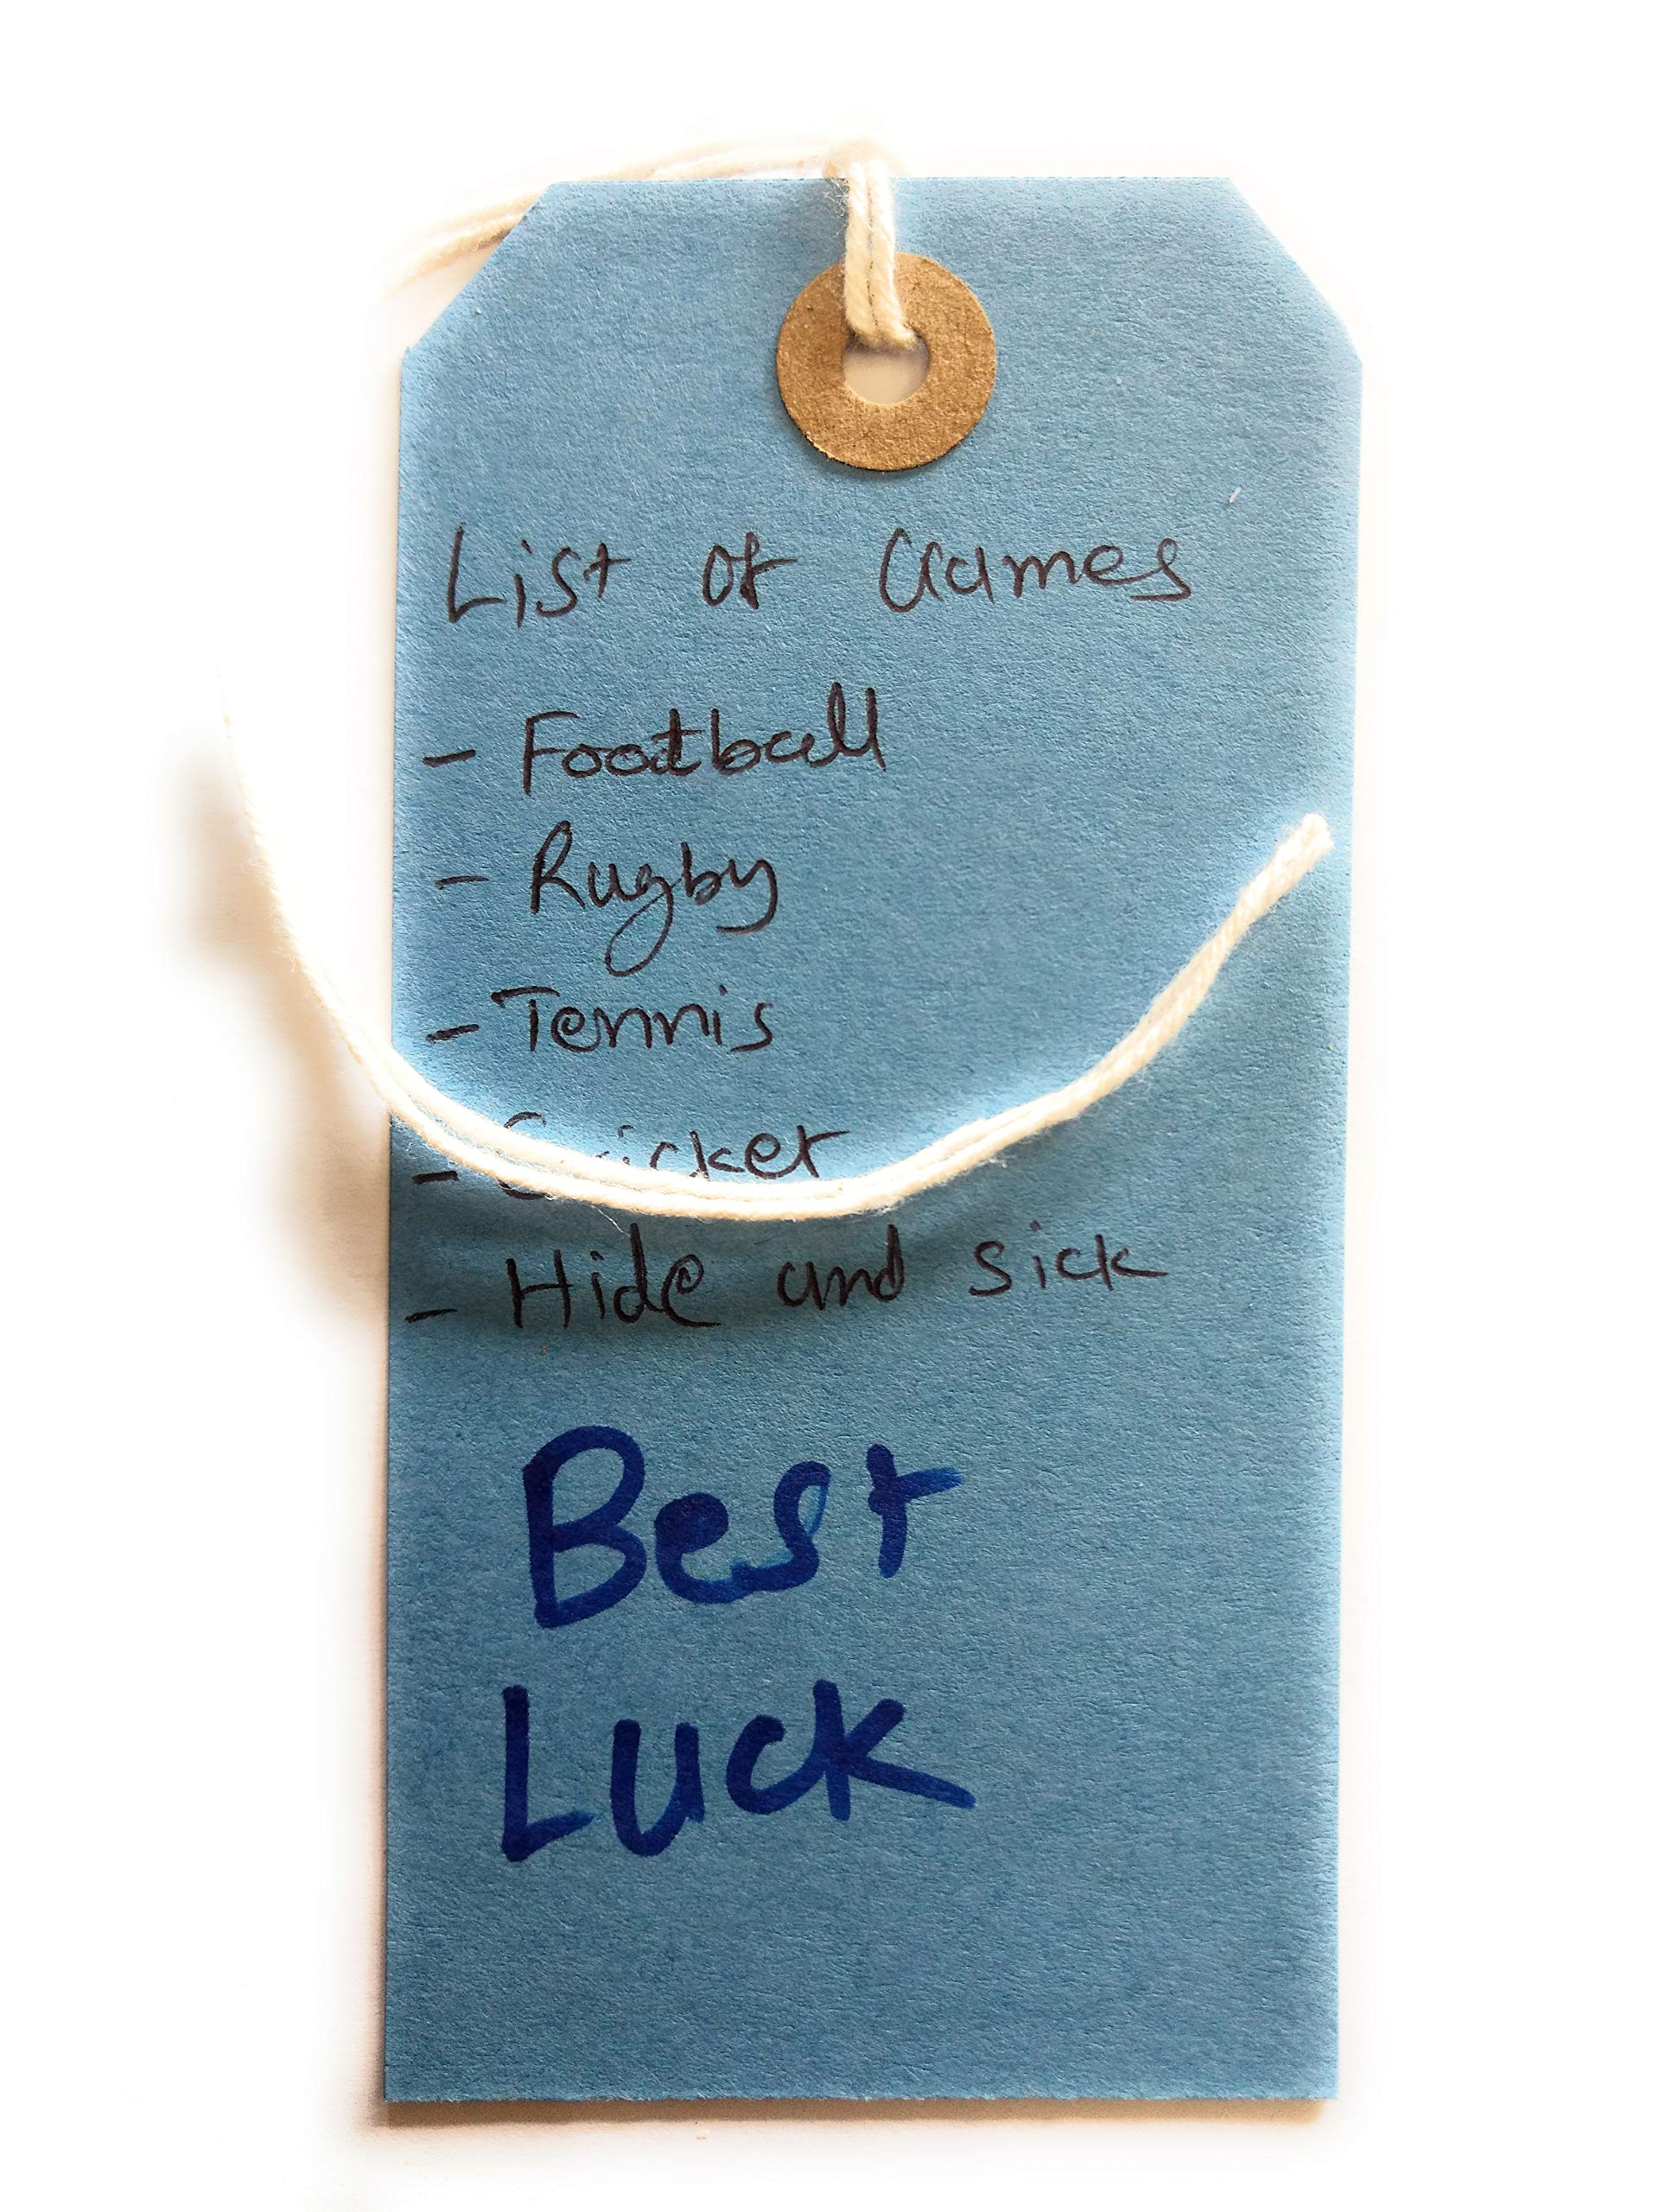 List of Games
- Football
- Rugby
- Tennis
- Cricket
- Hide and sick
Best
Luck